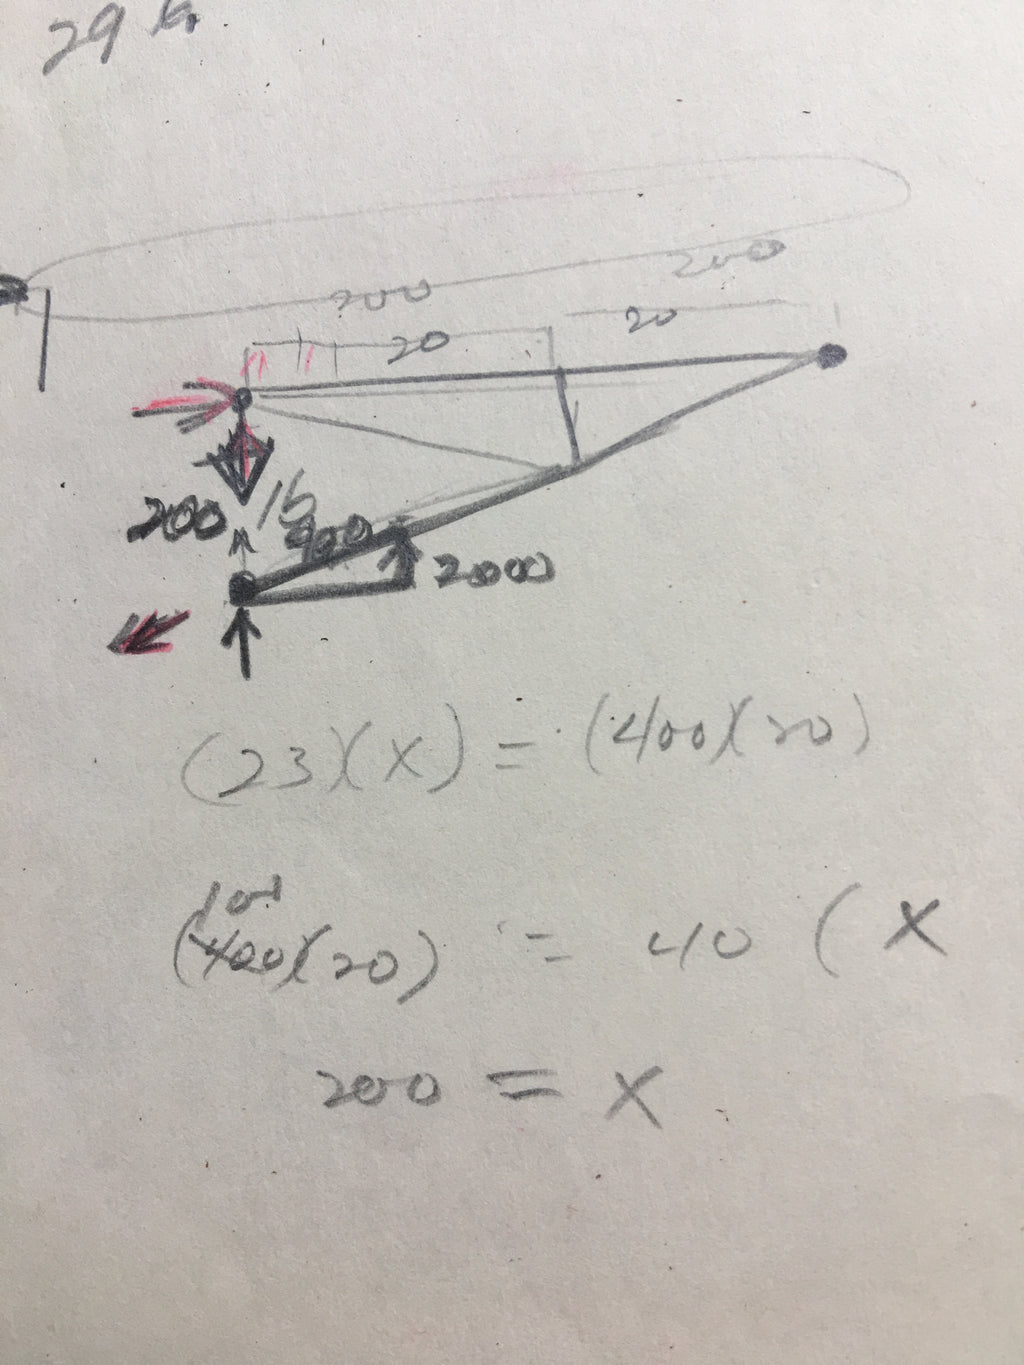 29
200
200
20
20
200
16
900
2000
(23)(X) = (400)(20)
(400)(20) = 40 ( X
200 = X